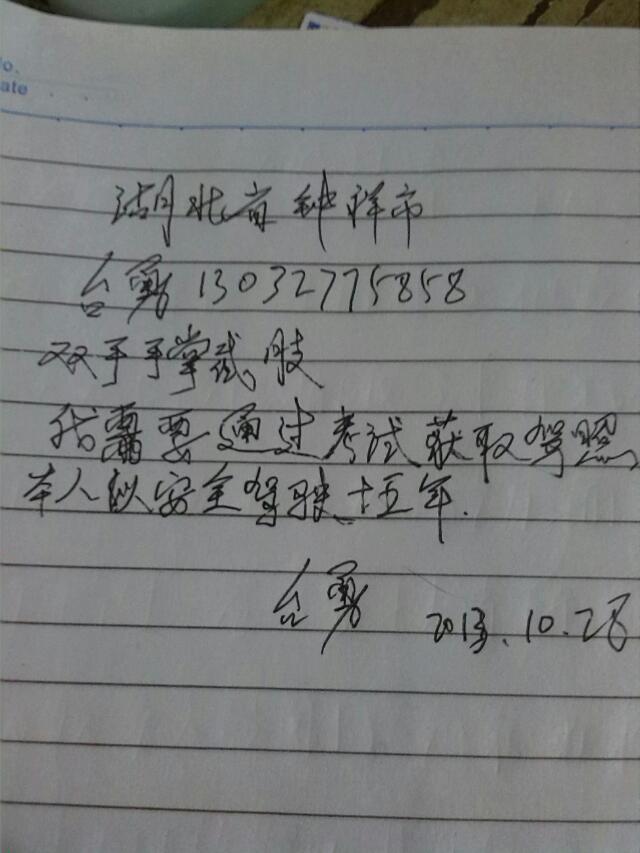 o.
ate
湖北省钟祥市
台勇 13032775858
双手手掌截肢
我需要通过考试获取驾照,
本人以安全驾驶十五年.
台勇 2013.10.28